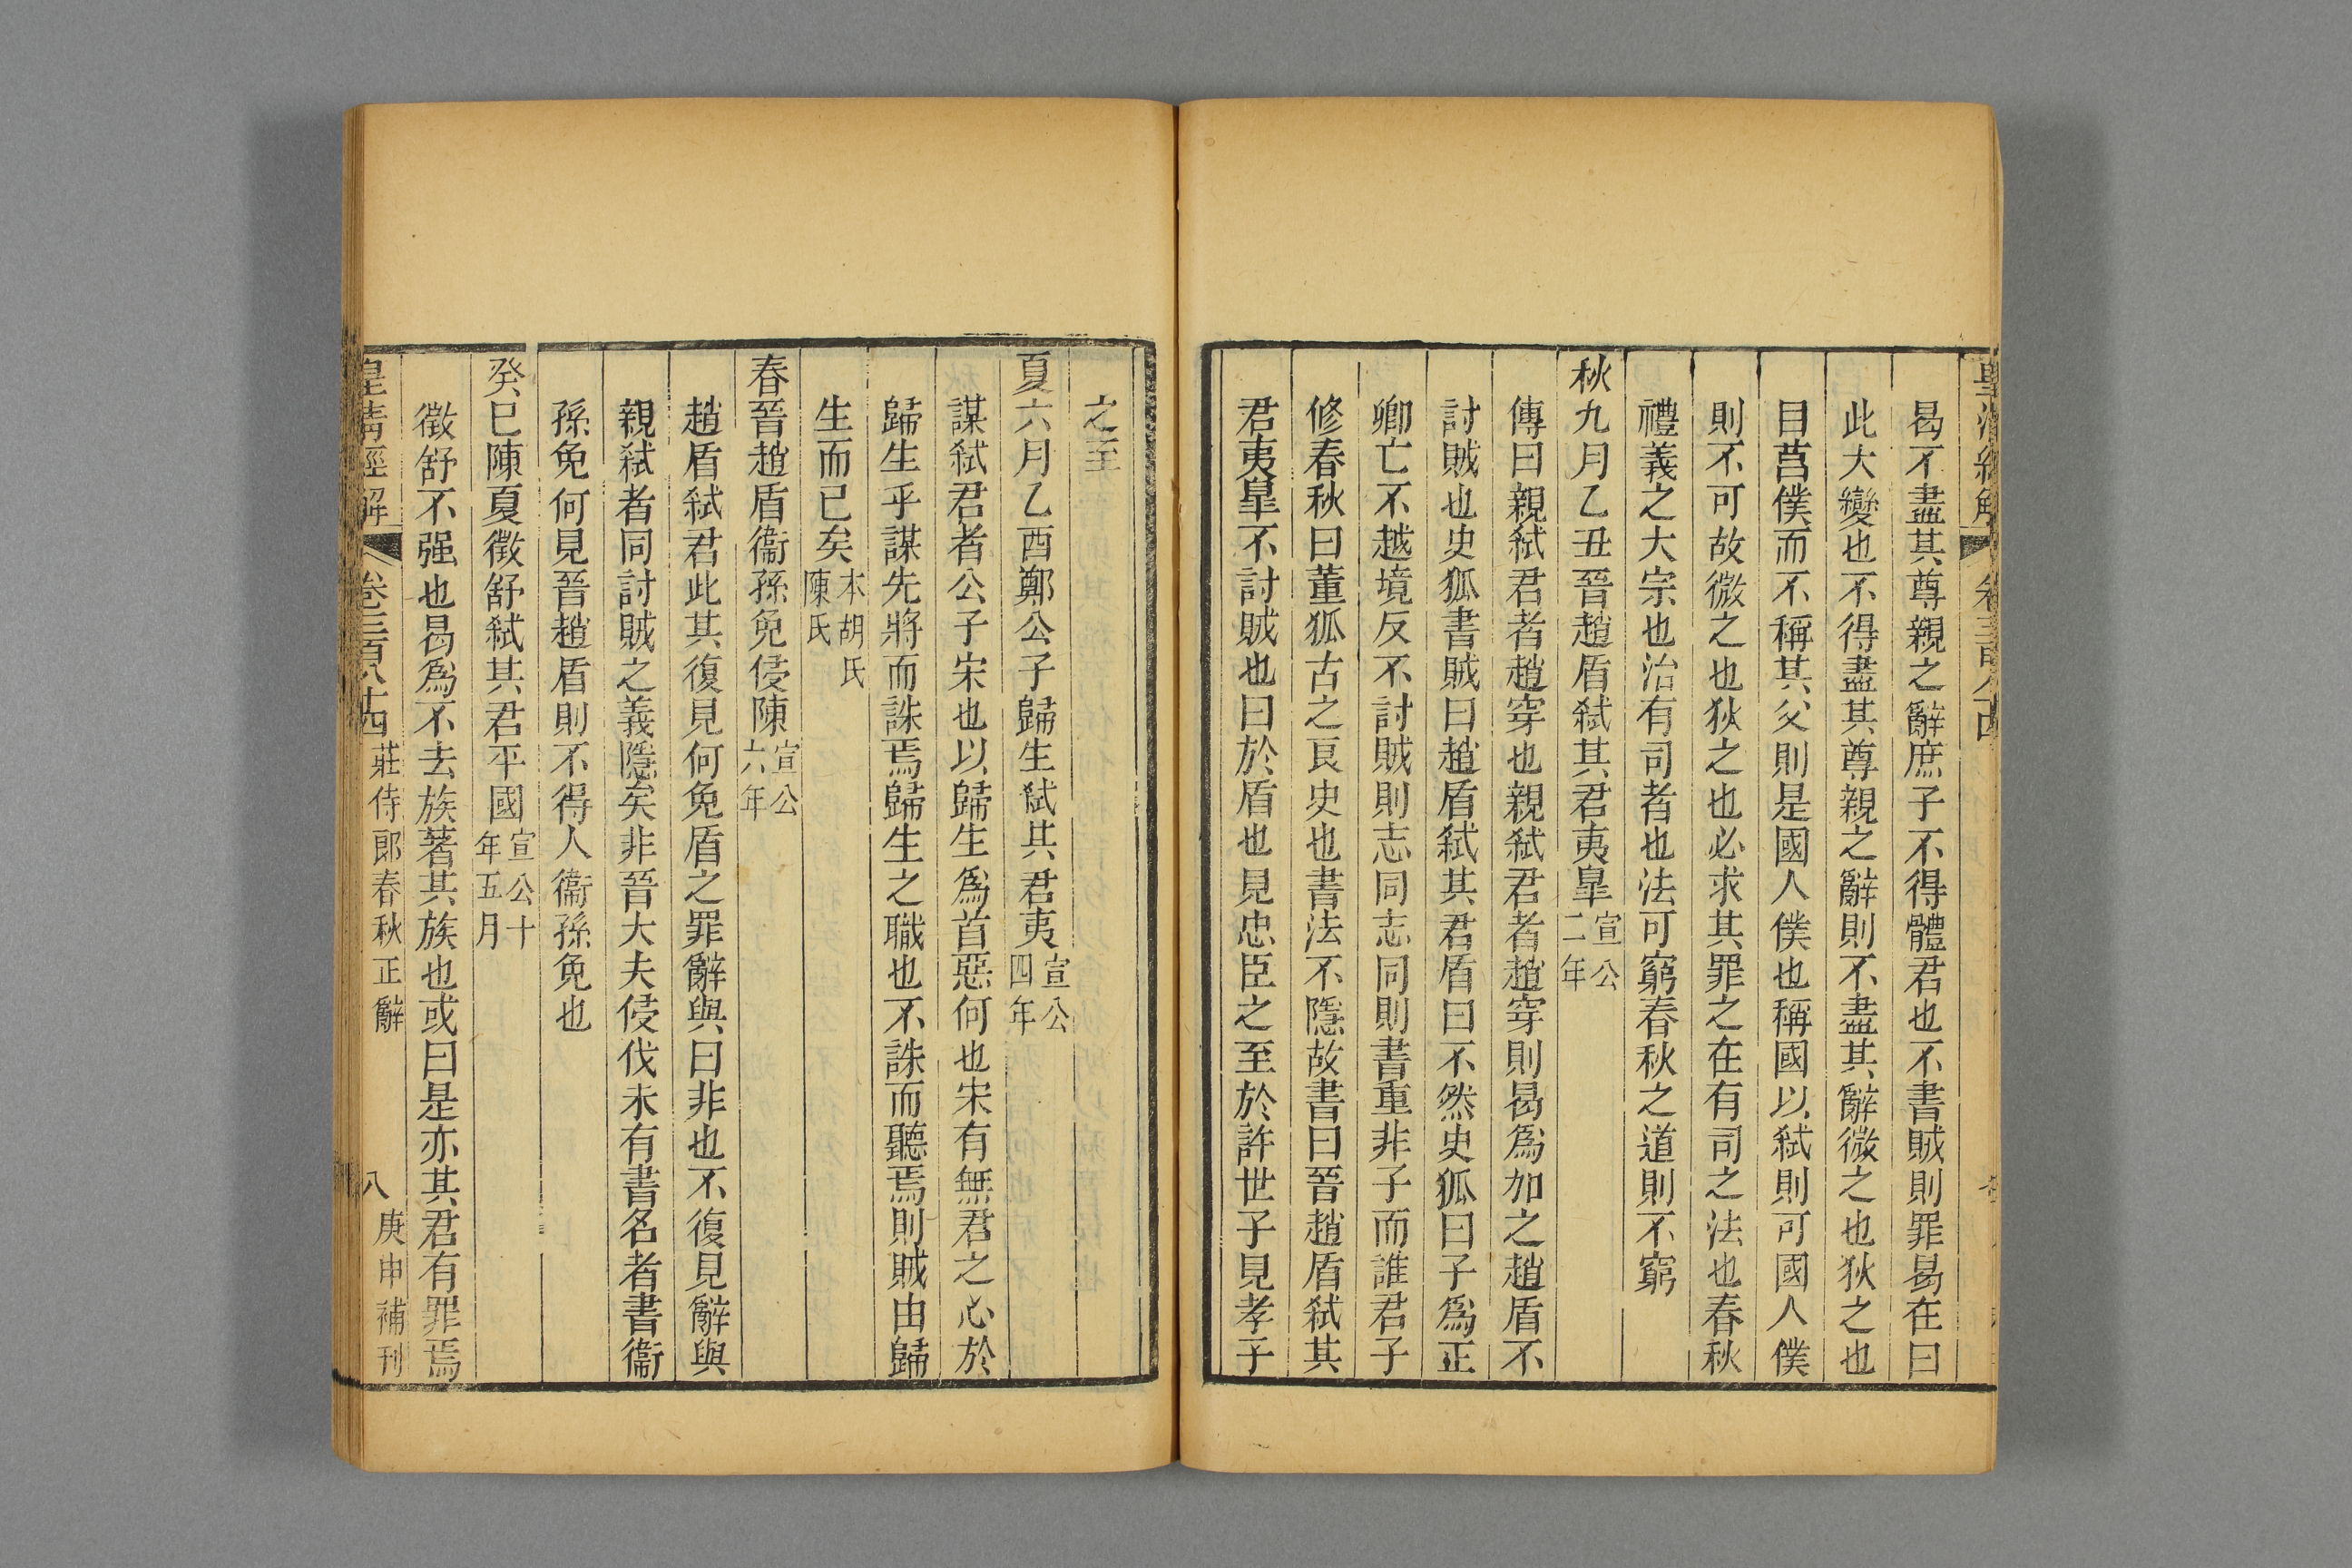 曷不盡其尊親之辭庶子不得體君也不書賊則罪曷在曰
此大變也不得盡其尊親之辭則不盡其辭微之也狄之也
目莒僕而不稱其父則是國人僕也稱國以弒則可國人僕
則不可故微之也狄之也必求其罪之在有司之法也春秋
禮義之大宗也治有司者也法可窮春秋之道則不窮
秋九月乙丑晉趙盾弒其君夷皐宣公二年
傳曰親弒君者趙穿也親弒君者趙穿則曷爲加之趙盾不
討賊也史狐書賊曰趙盾弒其君盾曰不然史狐曰子爲正
卿亡不越境反不討賊則志同志同則書重非子而誰君子
修春秋曰董狐古之良史也書法不隱故書曰晉趙盾弒其
君夷皐不討賊也曰於盾也見忠臣之至於許世子見孝子
之至
夏六月乙酉鄭公子歸生弒其君夷宣公四年
謀弒君者公子宋也以歸生爲首惡何也宋有無君之心於
歸生乎謀先將而誅焉歸生之職也不誅而聽焉則賊由歸
生而已矣本胡氏陳氏
春晉趙盾衞孫免侵陳宣公六年
趙盾弒君此其復見何免盾之罪辭與曰非也不復見辭與
親弒者同討賊之義隱矣非晉大夫侵伐未有書名者書衞
孫免何見晉趙盾則不得人衞孫免也
癸巳陳夏徵舒弒其君平國宣公十年五月
徵舒不强也曷爲不去族著其族也或曰是亦其君有罪焉
皇清經解 卷三百八十四 莊侍郎春秋正辭 八 庚申補刊